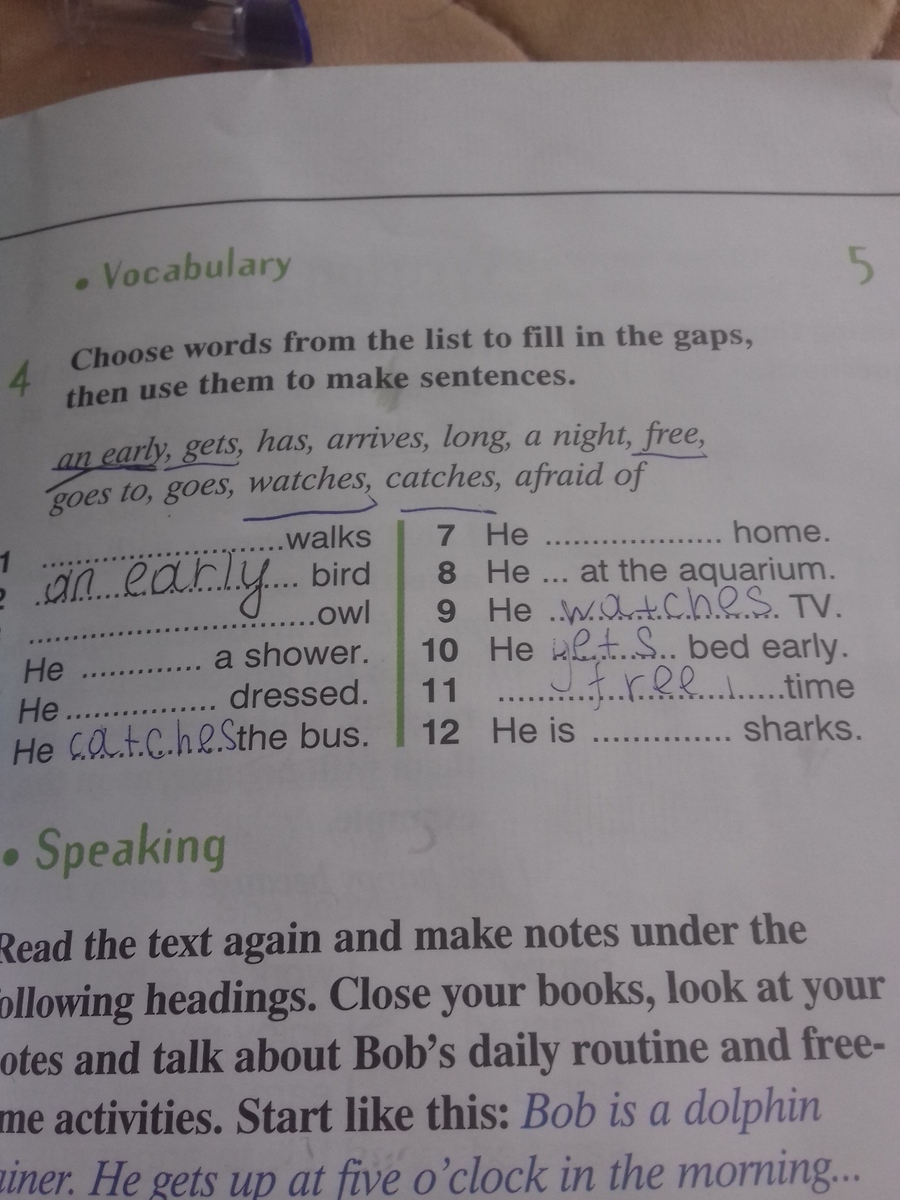 • Vocabulary 5
4 Choose words from the list to fill in the gaps,
then use them to make sentences.
an early, gets, has, arrives, long, a night, free,
goes to, goes, watches, catches, afraid of
1 ..............................walks
2 .an early.... bird
....................................owl
He ............. a shower.
He................ dressed.
He catches the bus.
7 He ................... home.
8 He ... at the aquarium.
9 He ..watches. TV.
10 He gets.. bed early.
11 ..........free.......time
12 He is .............. sharks.
• Speaking
Read the text again and make notes under the
ollowing headings. Close your books, look at your
otes and talk about Bob's daily routine and free-
me activities. Start like this: Bob is a dolphin
ainer. He gets up at five o'clock in the morning...